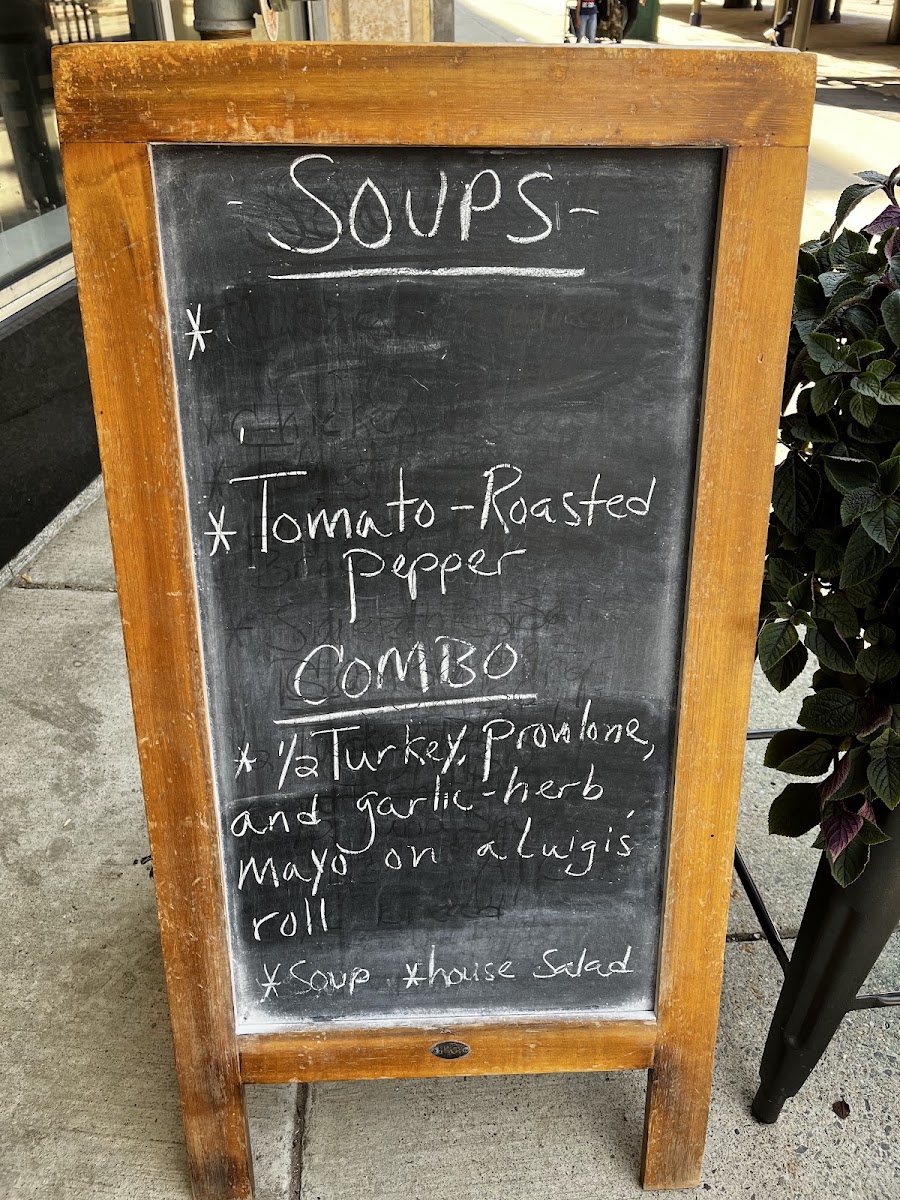 - SOUPS -
*
* Tomato - Roasted
pepper
COMBO
* ½ Turkey, provolone,
and garlic-herb
mayo on a Luigi's
roll
* Soup * house Salad